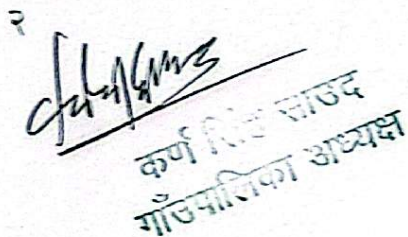 २
कर्ण सिंह साउद
गाँउपालिका अध्यक्ष